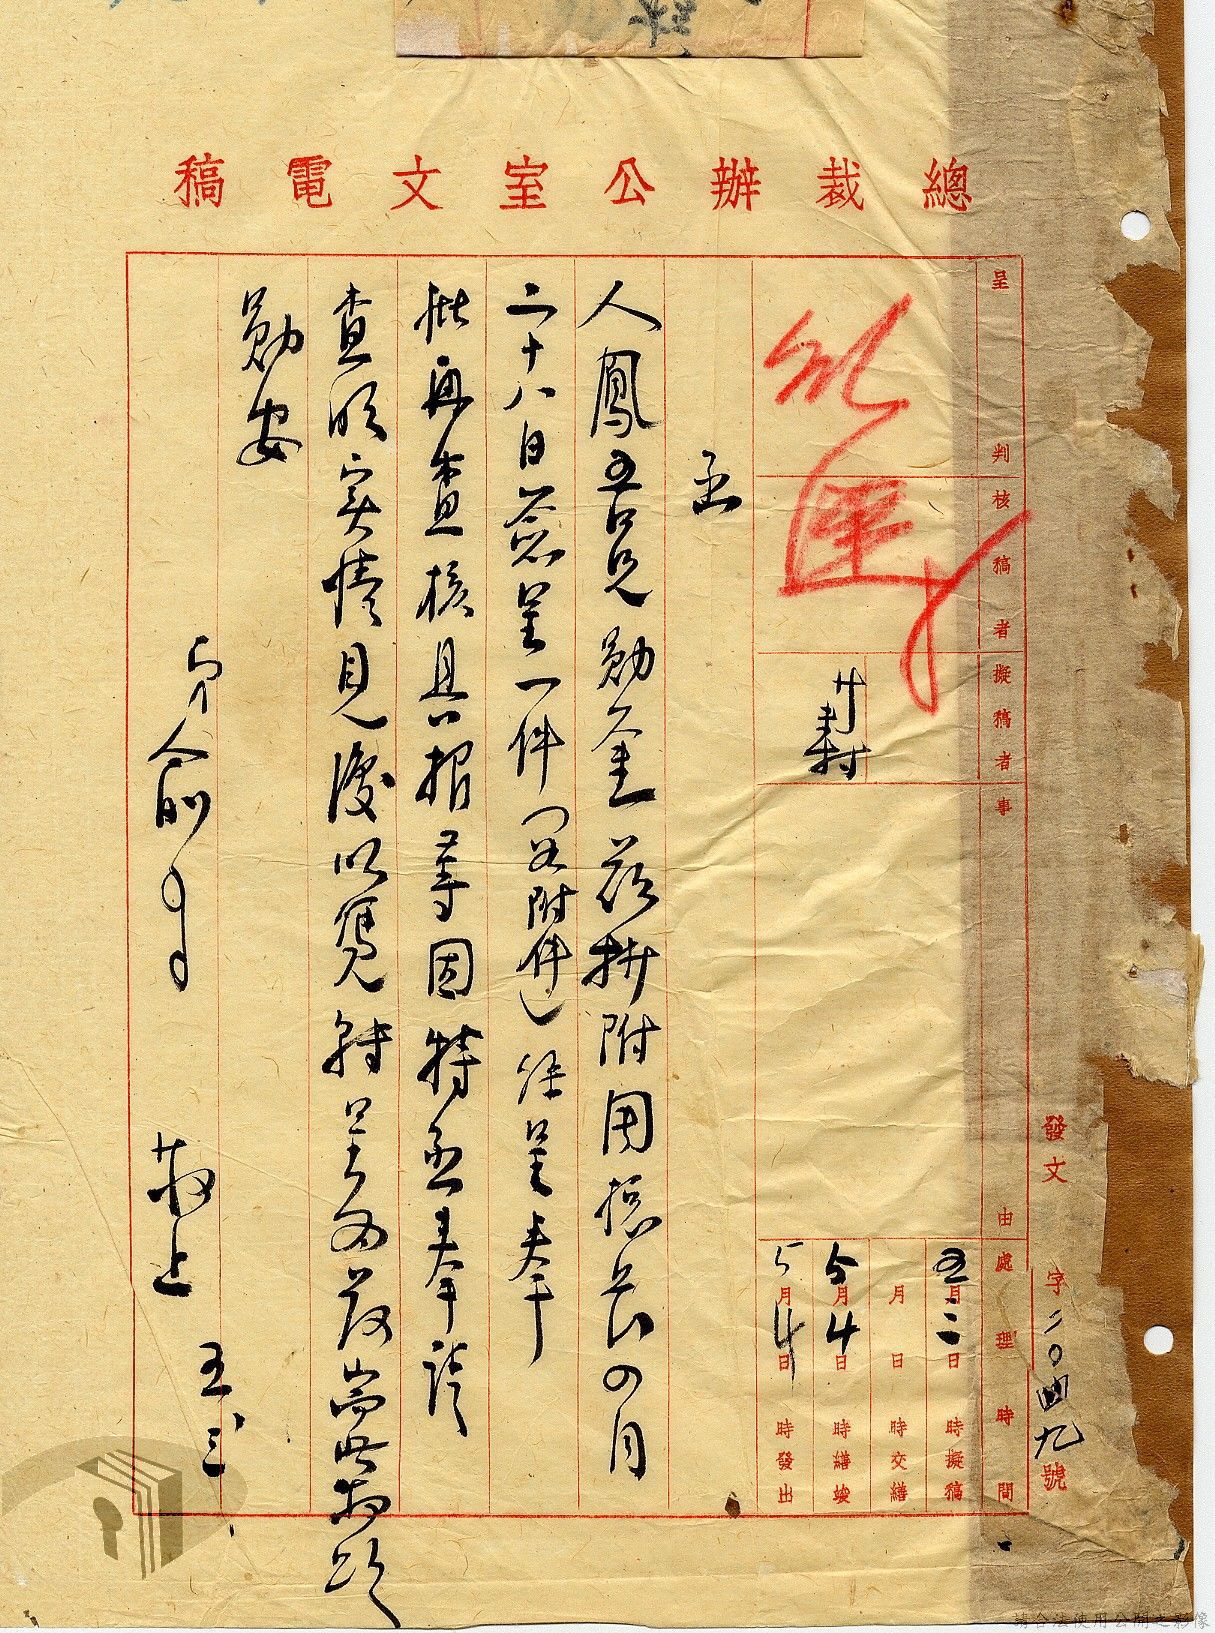 總裁辦公室文電稿
發文 字二〇四九號
呈判
核稿者
擬稿者
事由
處理時間
五月二日 時擬稿
月 日 時交繕
5月4日 時繕竣
5月4日 時發出
函
人鳳吾兄勛鑒茲抄附周總長四月
二十八日簽呈一件(另附件)經呈奉
批再查核具報等因特函奉請
查明實情見復以憑轉呈為荷耑此敬頌
勛安
弟俞
敬上
五、三
請合法使用公開之影像